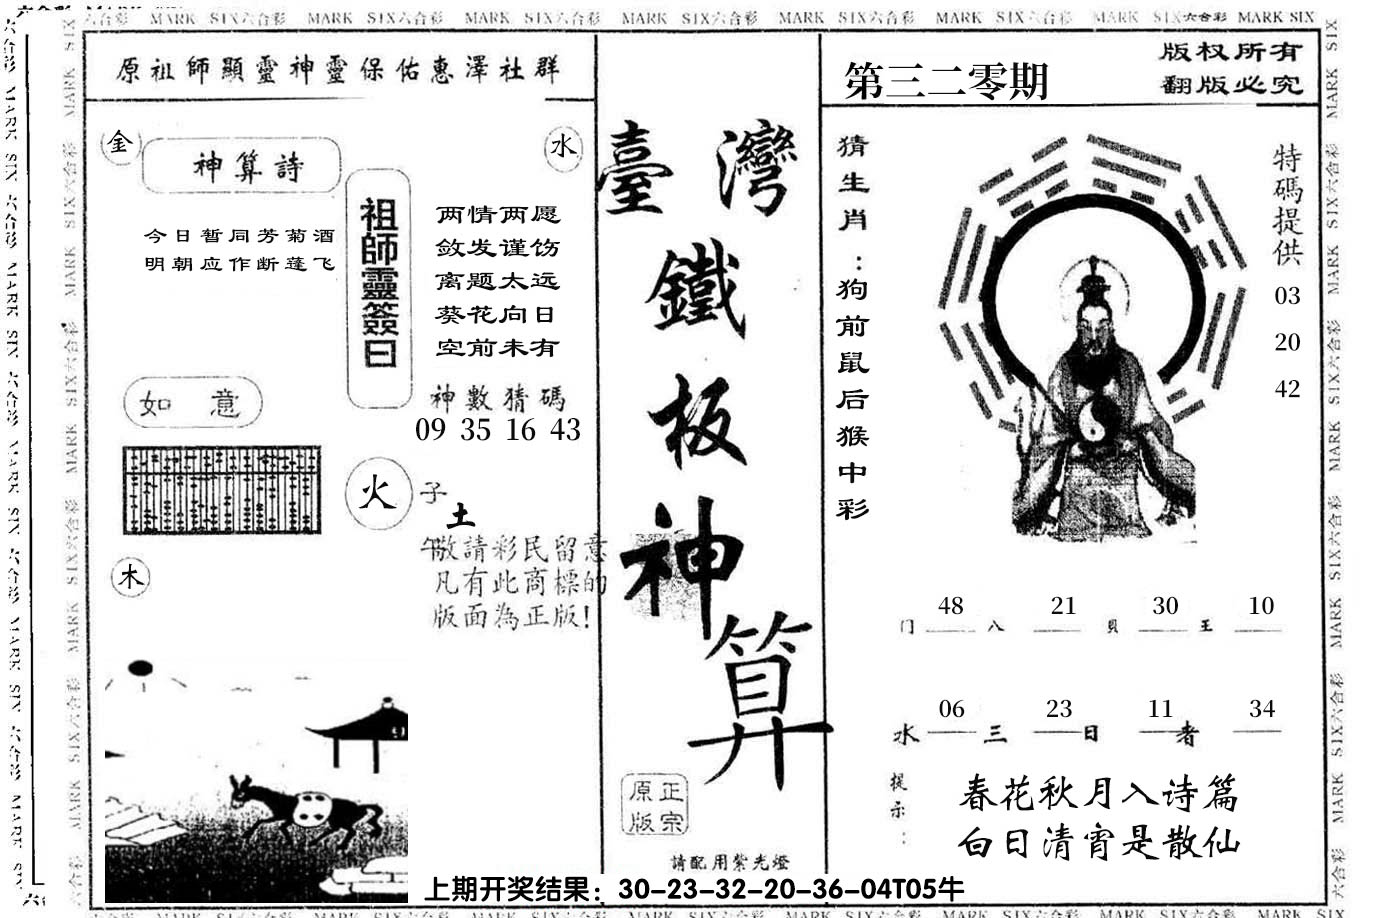 MARK SIX六合彩 MARK SIX六合彩 MARK SIX六合彩 MARK SIX六合彩 MARK SIX六合彩 MARK SIX六合彩 MARK SIX六合彩 MARK SIX
原祖師顯靈神靈保佑惠澤社群
金
神算詩
水
今日暂同芳菊酒
明朝应作断蓬飞
祖師靈簽曰
两情两愿
敛发谨饬
离题太远
葵花向日
空前未有
神數猜碼
09 35 16 43
如意
火
子
土
午
敬請彩民留意
凡有此商標的
版面為正版!
木
臺灣
鐵
板
神
算
正宗
原版
請配用紫光燈
第三二零期
版权所有
翻版必究
猜生肖:狗前鼠后猴中彩
特碼提供
03
20
42
48 21 30 10
门 八 貝 王
06 23 11 34
水 三 日 者
提示:
春花秋月入诗篇
白日清宵是散仙
上期开奖结果：30-23-32-20-36-04T05牛